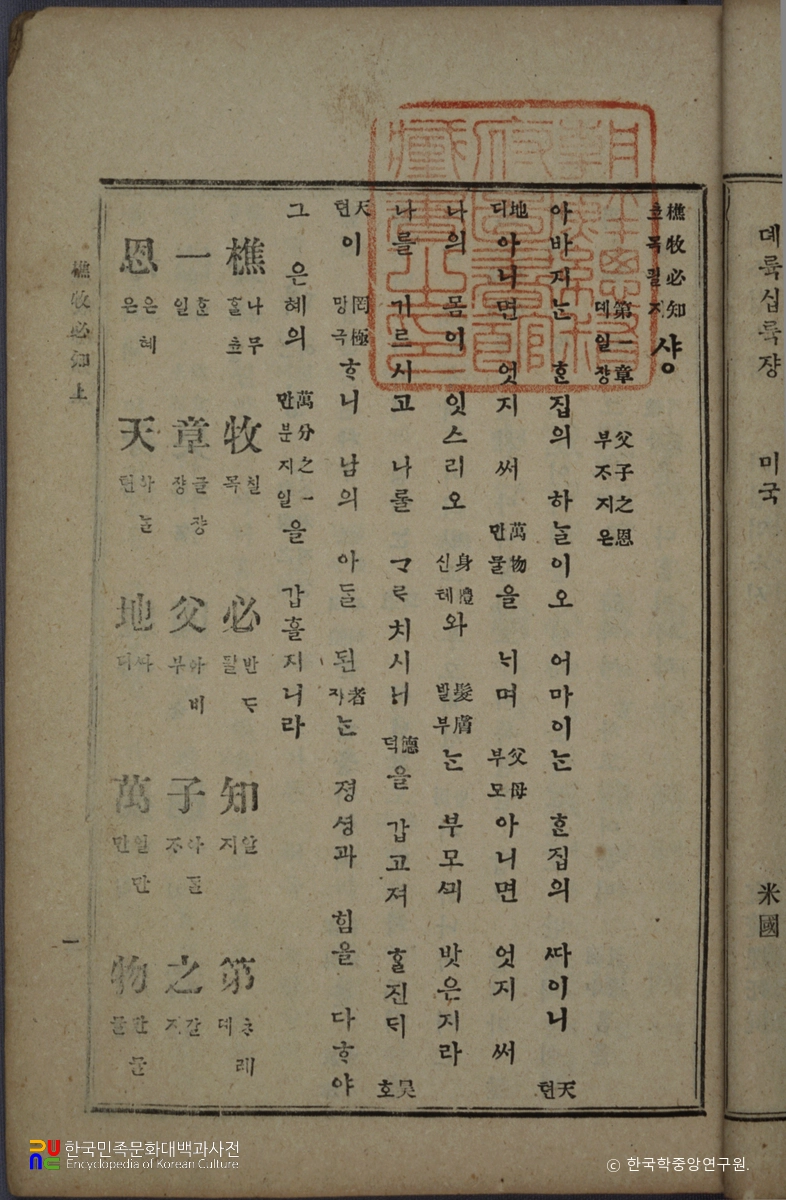 뎨륙십륙쟝 미국 米國
樵牧必知 초목필지 샹
第一章 뎨일쟝 父子之恩 부ᄌᆞ지은
아바지ᄂᆞᆫ ᄒᆞᆫ집의 하ᄂᆞᆯ이오 어마이ᄂᆞᆫ ᄒᆞᆫ집의 ᄯᅡ이니 天텬
地디아니면 엇지써 萬物만물을 ᄂᆡ며 父母부모아니면 엇지써
나의 몸이 잇스리오 身體신톄와 髮膚발부ᄂᆞᆫ 부모ᄭᅴ 밧은지라
나를 기르시고 나를 ᄀᆞᄅᆞ치시니 德덕을 갑고져 ᄒᆞᆯ진ᄃᆡ 昊호
天텬이 罔極망극ᄒᆞ니 남의 아ᄃᆞᆯ 된 者쟈ᄂᆞᆫ 졍셩과 힘을 다ᄒᆞ야
그 은혜의 萬分之一만분지일을 갑흘지니라
樵 나무ᄒᆞᆯ초 牧 칠목 必 반ᄃᆞ필 知 알지 第 ᄎᆞ례뎨
一 ᄒᆞᆫ일 章 글쟝쟝 父 아비부 子 아ᄃᆞᆯᄌᆞ 之 갈지
恩 은혜은 天 하ᄂᆞᆯ텬 地 ᄯᅡ디 萬 일만만 物 만물물
樵牧必知上 一
한국민족문화대백과사전
Encyclopedia of Korean Culture
© 한국학중앙연구원.